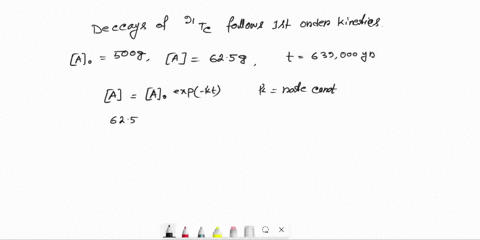 Deccays of ⁹¹Tc follows 1st order kinetics
[A]₀ = 500g, [A] = 62.5g, t = 639,000 yr
[A] = [A]₀ exp(-kt) k = rate const
62.5